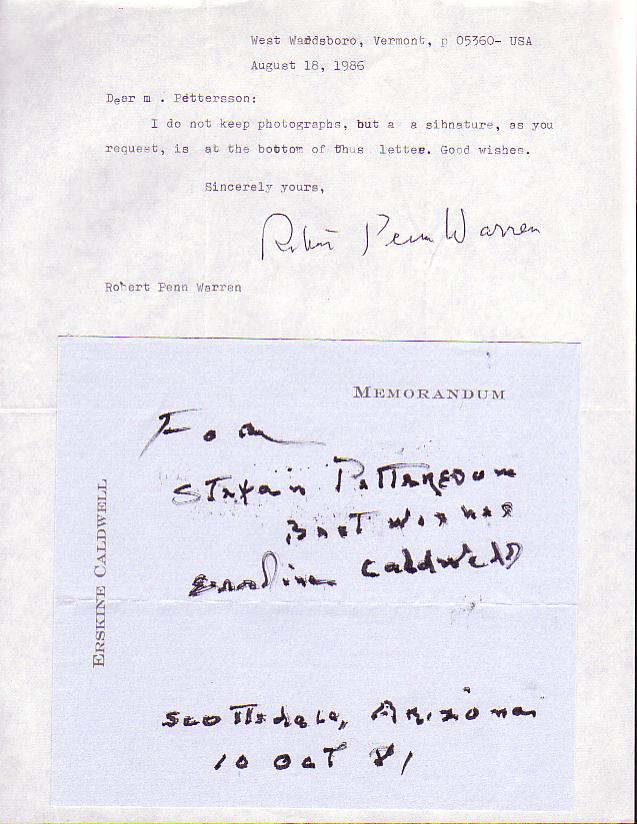 West Wardsboro, Vermont, p 05360- USA
August 18, 1986
Dear m . Pettersson:
I do not keep photographs, but a a sihnature, as you
request, is at the bottom of thus letter. Good wishes.
Sincerely yours,
Robert Penn Warren
Robert Penn Warren
MEMORANDUM
ERSKINE CALDWELL
For
Stefan Pettersson
Best wishes
Erskine Caldwell
Scottsdale, Arizona
10 Oct 81